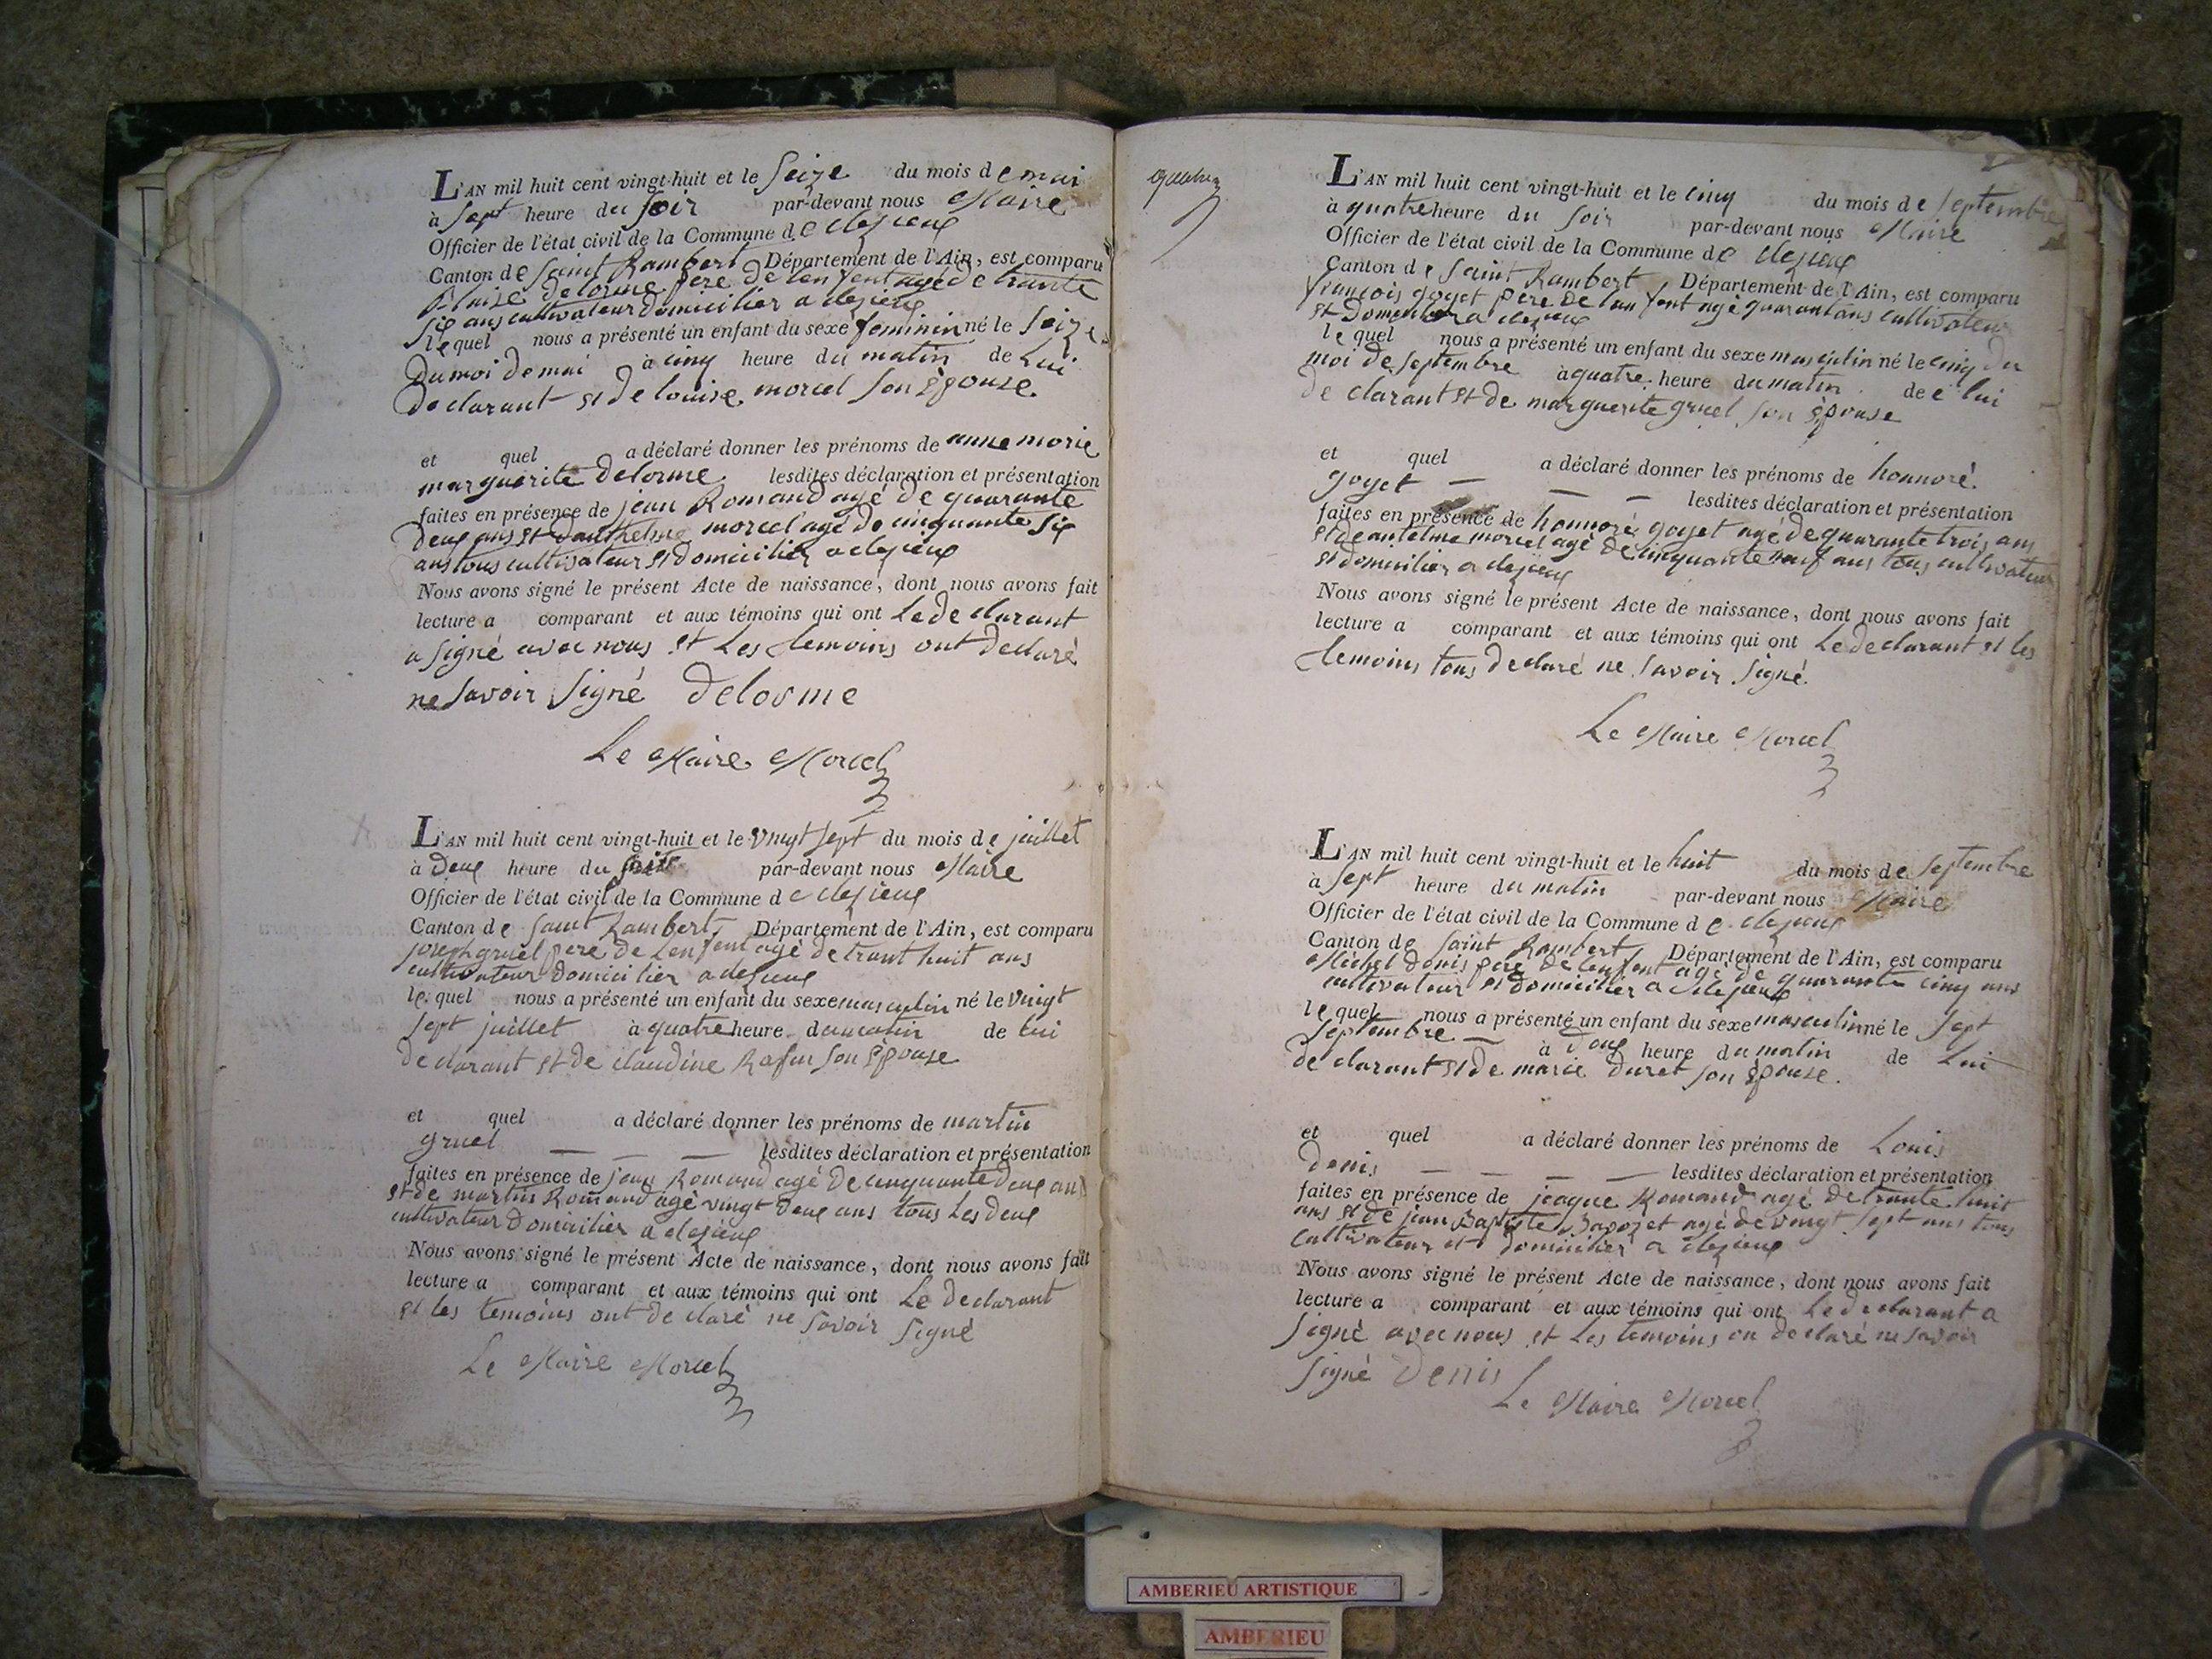 L'AN mil huit cent vingt-huit et le Seize du mois de mai
à Sept heure du Soir par-devant nous Maire
Officier de l'état civil de la Commune de clezieux
Canton de Saint Rambert Département de l'Ain, est comparu
Blaise delorme pere de lenfent agé de trante
six ans cultivateur domicilier a clezieux
le quel nous a présenté un enfant du sexe feminin né le Seize
du moi de mai à cinq heure du matin de Lui
declarant et de louise morcel son Epouse
et quel a déclaré donner les prénoms de anne marie
marguerite delorme lesdites déclaration et présentation
faites en présence de jean Romand agé de quarante
deux ans et danthelme morcel agé de cinquante six
ans tous cultivateur et domicilier a clezieux
Nous avons signé le présent Acte de naissance, dont nous avons fait
lecture a comparant et aux témoins qui ont Le declarant
a signé avec nous et Les temoins ont declaré
ne savoir signé delosme
Le Maire Morcel
L'AN mil huit cent vingt-huit et le vingt sept du mois de juillet
à deux heure du soir par-devant nous Maire
Officier de l'état civil de la Commune de clezieux
Canton de saint Rambert, Département de l'Ain, est comparu
joseph gruel pere de Lenfent agé de trant huit ans
cultivateur domicilier a clezieux
le quel nous a présenté un enfant du sexe masculin né le vingt
sept juillet à quatre heure du matin de lui
declarant et de claudine son Epouse
et quel a déclaré donner les prénoms de martin
gruel — — — lesdites déclaration et présentation
faites en présence de jean Romand agé de cinquante deux ans
et de martin Romand agé vingt deux ans tous Les deux
cultivateur domicilier a clezieux
Nous avons signé le présent Acte de naissance, dont nous avons fait
lecture a comparant et aux témoins qui ont Le declarant
et les temoins ont declaré ne savoir signé
Le Maire Morcel
quatre
L'AN mil huit cent vingt-huit et le cinq du mois de septembre
à quatre heure du soir par-devant nous Maire
Officier de l'état civil de la Commune de clezieux
Canton de Saint Rambert, Département de l'Ain, est comparu
francois goyet pere de lan fent agé quarant ans cultivateur
et domicilier a clezieux
le quel nous a présenté un enfant du sexe masculin né le cinq du
moi de septembre à quatre heure du matin de e lui
de clarant et de marguerite gruel son Epouse
et quel a déclaré donner les prénoms de honnoré
goyet — — — lesdites déclaration et présentation
faites en présence de honnoré goyet agé de quarante trois ans
et de antelme morcel agé de cinquante neuf ans tous cultivateur
et domicilier a clezieux
Nous avons signé le présent Acte de naissance, dont nous avons fait
lecture a comparant et aux témoins qui ont Le declarant et les
temoins tous declaré ne savoir signé
Le Maire Morcel
L'AN mil huit cent vingt-huit et le huit du mois de septembre
à sept heure du matin par-devant nous Maire
Officier de l'état civil de la Commune de clezieux
Canton de Saint Rambert, Département de l'Ain, est comparu
Michel denis pere de lenfent agé de quarante cinq ans
cultivateur et domicilier a clezieux
le quel nous a présenté un enfant du sexe masculin né le sept
septembre — à deux heure du matin de Lui
de clarant et de marie duret son Epouse.
et quel a déclaré donner les prénoms de Louis
denis — — — — lesdites déclaration et présentation
faites en présence de jcaque Romand agé de trante huit
ans et de jean Baptiste agé de vingt sept ans tous
cultivateur et domicilier a clezieux
Nous avons signé le présent Acte de naissance, dont nous avons fait
lecture a comparant et aux témoins qui ont Le declarant a
signé avec nous et Les temoins on declaré ne savoir
signé Denis
Le Maire Morcel
AMBERIEU ARTISTIQUE
AMBERIEU